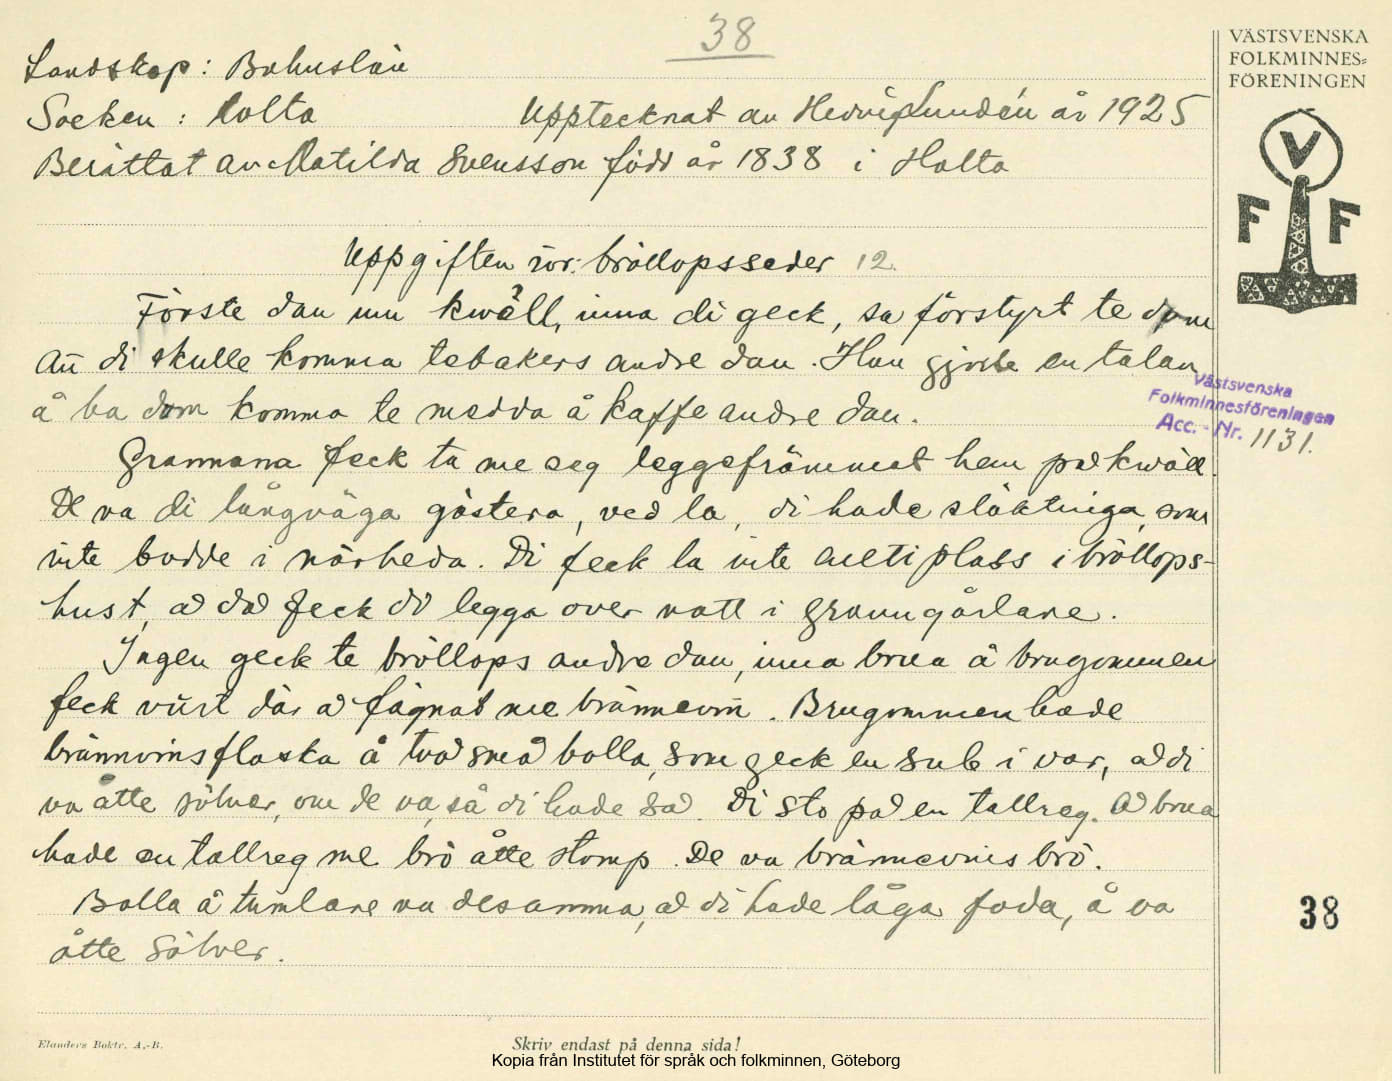 38
VÄSTSVENSKA
FOLKMINNES=
FÖRENINGEN
V
F F
Landskap: Bohuslän
Socken: Holta Upptecknat av Hedvig Lundén år 1925
Berättat av Matilda Svensson född år 1838 i Holta
Uppgiften rör: bröllopsseder 12.
Förste dan um kwäll, inna di geck, sa förstyrt te dom
än di skulle komma tebakers andre dan. Han gjorde en talan
å ba dom komma te medda å kaffe andre dan.
Västsvenska
Folkminnesföreningen
Acc. - Nr. 1131.
Grannana feck ta me seg leggefrämmat hem på kwäll.
De va di långväga gästera, ved la, di hade släktninga, som
inte bodde i närheda. Di feck la inte allti plass i bröllops-
hust, å då feck di legga over natt i granngårdane.
Ingen geck te bröllops andre dan, inna brua å brugommen
feck vurt där å fägnat me brännevin. Brugommen hade
brännvinsflaska å två små bolla, som geck en sub i var, å di
va åtte sölver, om de va, så di hade så. Di sto på en tallreg. Å brua
hade en tallreg me brö åtte stomp. De va brännevins brö.
Bolla å tumlare va desamma, å di hade låga foda, å va
åtte sölver.
38
Elanders Boktr. A.-B.
Skriv endast på denna sida!
Kopia från Institutet för språk och folkminnen, Göteborg